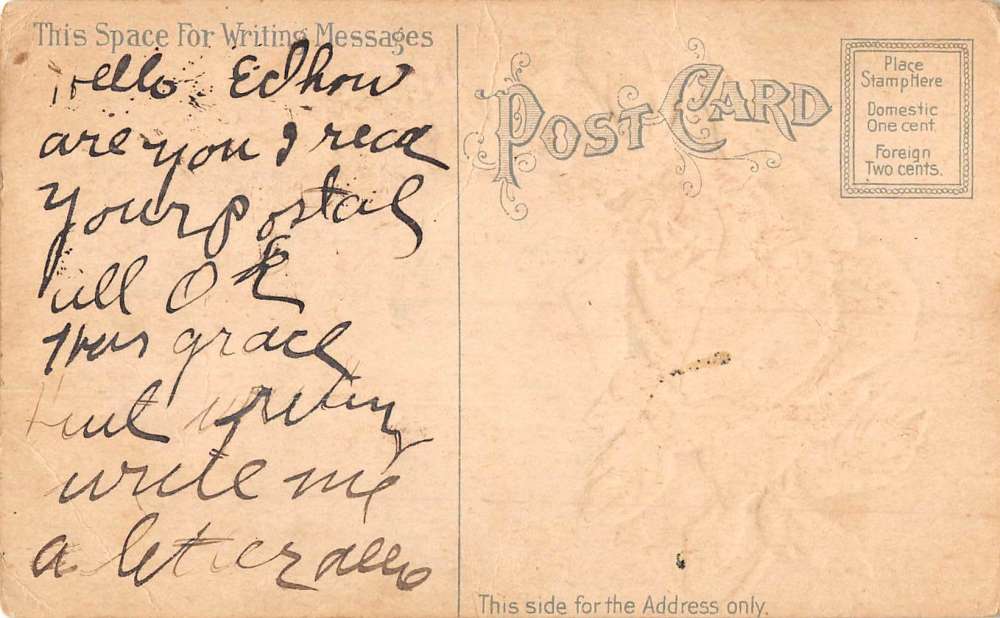 This Space For Writing Messages
Hello Ed how
are you I recd
your postal
all O K
grace
writing
write me
a letter
POST CARD
Place
Stamp Here
Domestic
One cent.
Foreign
Two cents.
This side for the Address only.